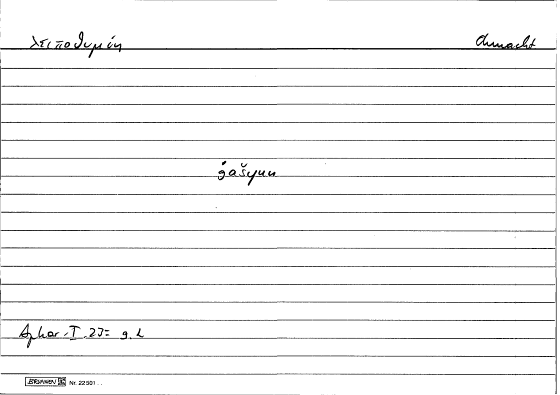 λειποθυμίη Ohnmacht
ġašyun
Aphor. I 23 = 9.2
BRUNNEN Nr. 22501